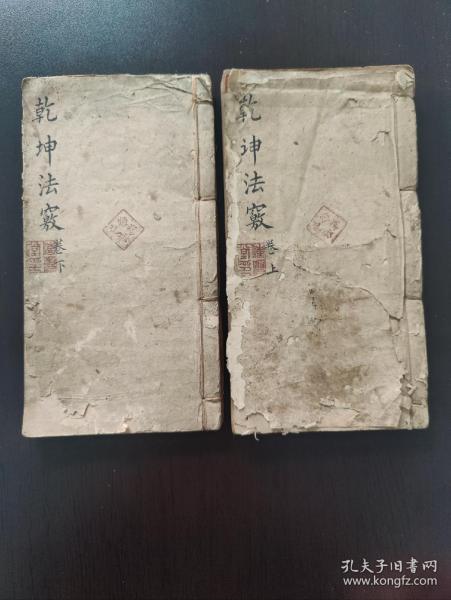 乾坤法竅
卷上
乾坤法竅
卷下
孔夫子旧书网
www.kongfz.com